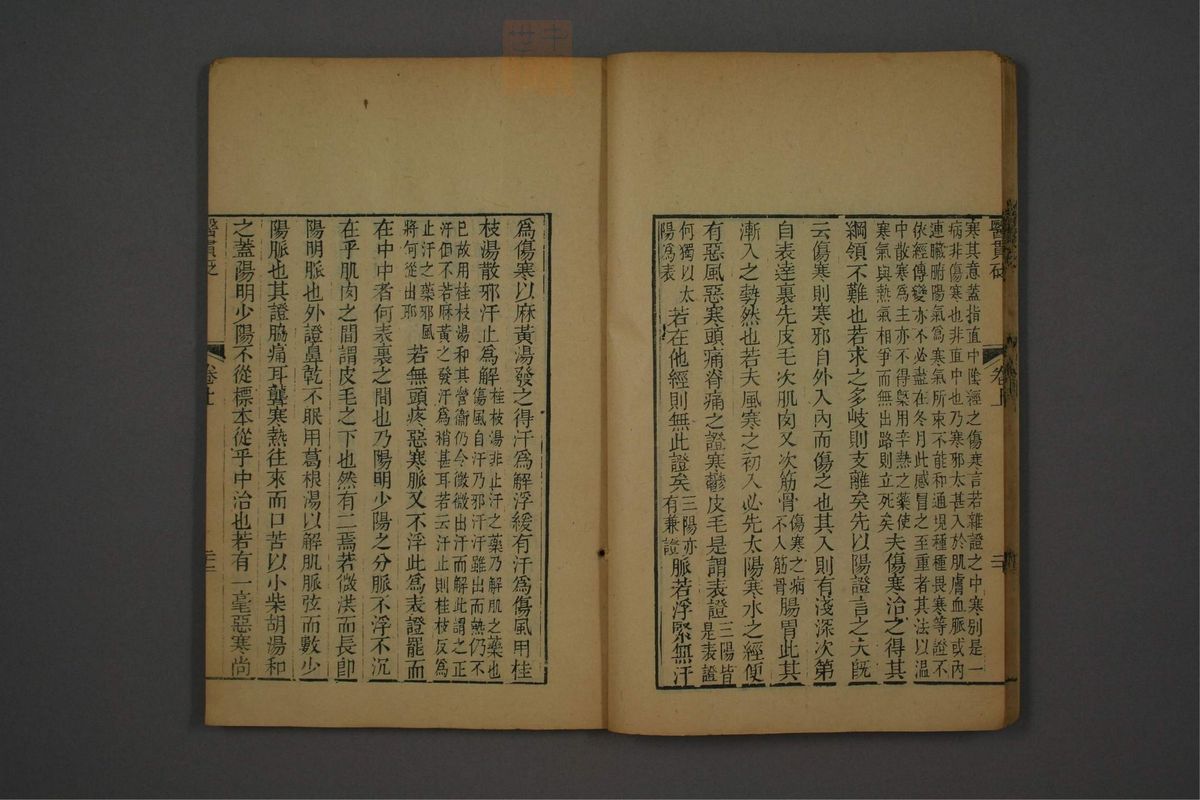 寒其意蓋指直中陰經之傷寒言若雜證之中寒別是一
病非傷寒也非直中也乃寒邪太甚入於肌膚血脈或內
連臟腑陽氣爲寒氣所束不能和通現種種畏寒等證不
依經傳變亦不必盡在冬月此感冒之至重者其法以溫
中散寒爲主亦不得槩用辛熱之藥使
寒氣與熱氣相爭而無出路則立死矣夫傷寒治之得其
綱領不難也若求之多岐則支離矣先以陽證言之夫旣
云傷寒則寒邪自外入內而傷之也其入則有淺深次第
自表達裏先皮毛次肌肉又次筋骨傷寒之病
不入筋骨腸胃此其
漸入之勢然也若夫風寒之初入必先太陽寒水之經便
有惡風惡寒頭痛脊痛之證寒鬱皮毛是謂表證三陽皆
是表證
何獨以太
陽爲表若在他經則無此證矣三陽亦
有兼證脈若浮緊無汗
醫貫砭
卷上
爲傷寒以麻黃湯發之得汗爲解浮緩有汗爲傷風用桂
枝湯散邪汗止爲解桂枝湯非止汗之藥乃解肌之藥也
傷風自汗乃邪汗汗雖出而熱仍不
已故用桂枝湯和其營衞仍令微微出汗而解此謂之正
汗但不若麻黃之發汗爲稍甚耳若云汗止則桂枝反爲
止汗之藥邪風
將何從出耶若無頭疼惡寒脈又不浮此爲表證罷而
在中中者何表裏之間也乃陽明少陽之分脈不浮不沉
在乎肌肉之間謂皮毛之下也然有二焉若微洪而長卽
陽明脈也外證鼻乾不眠用葛根湯以解肌脈弦而數少
陽脈也其證脇痛耳聾寒熱往來而口苦以小柴胡湯和
之蓋陽明少陽不從標本從乎中治也若有一毫惡寒尚
醫貫砭
卷上